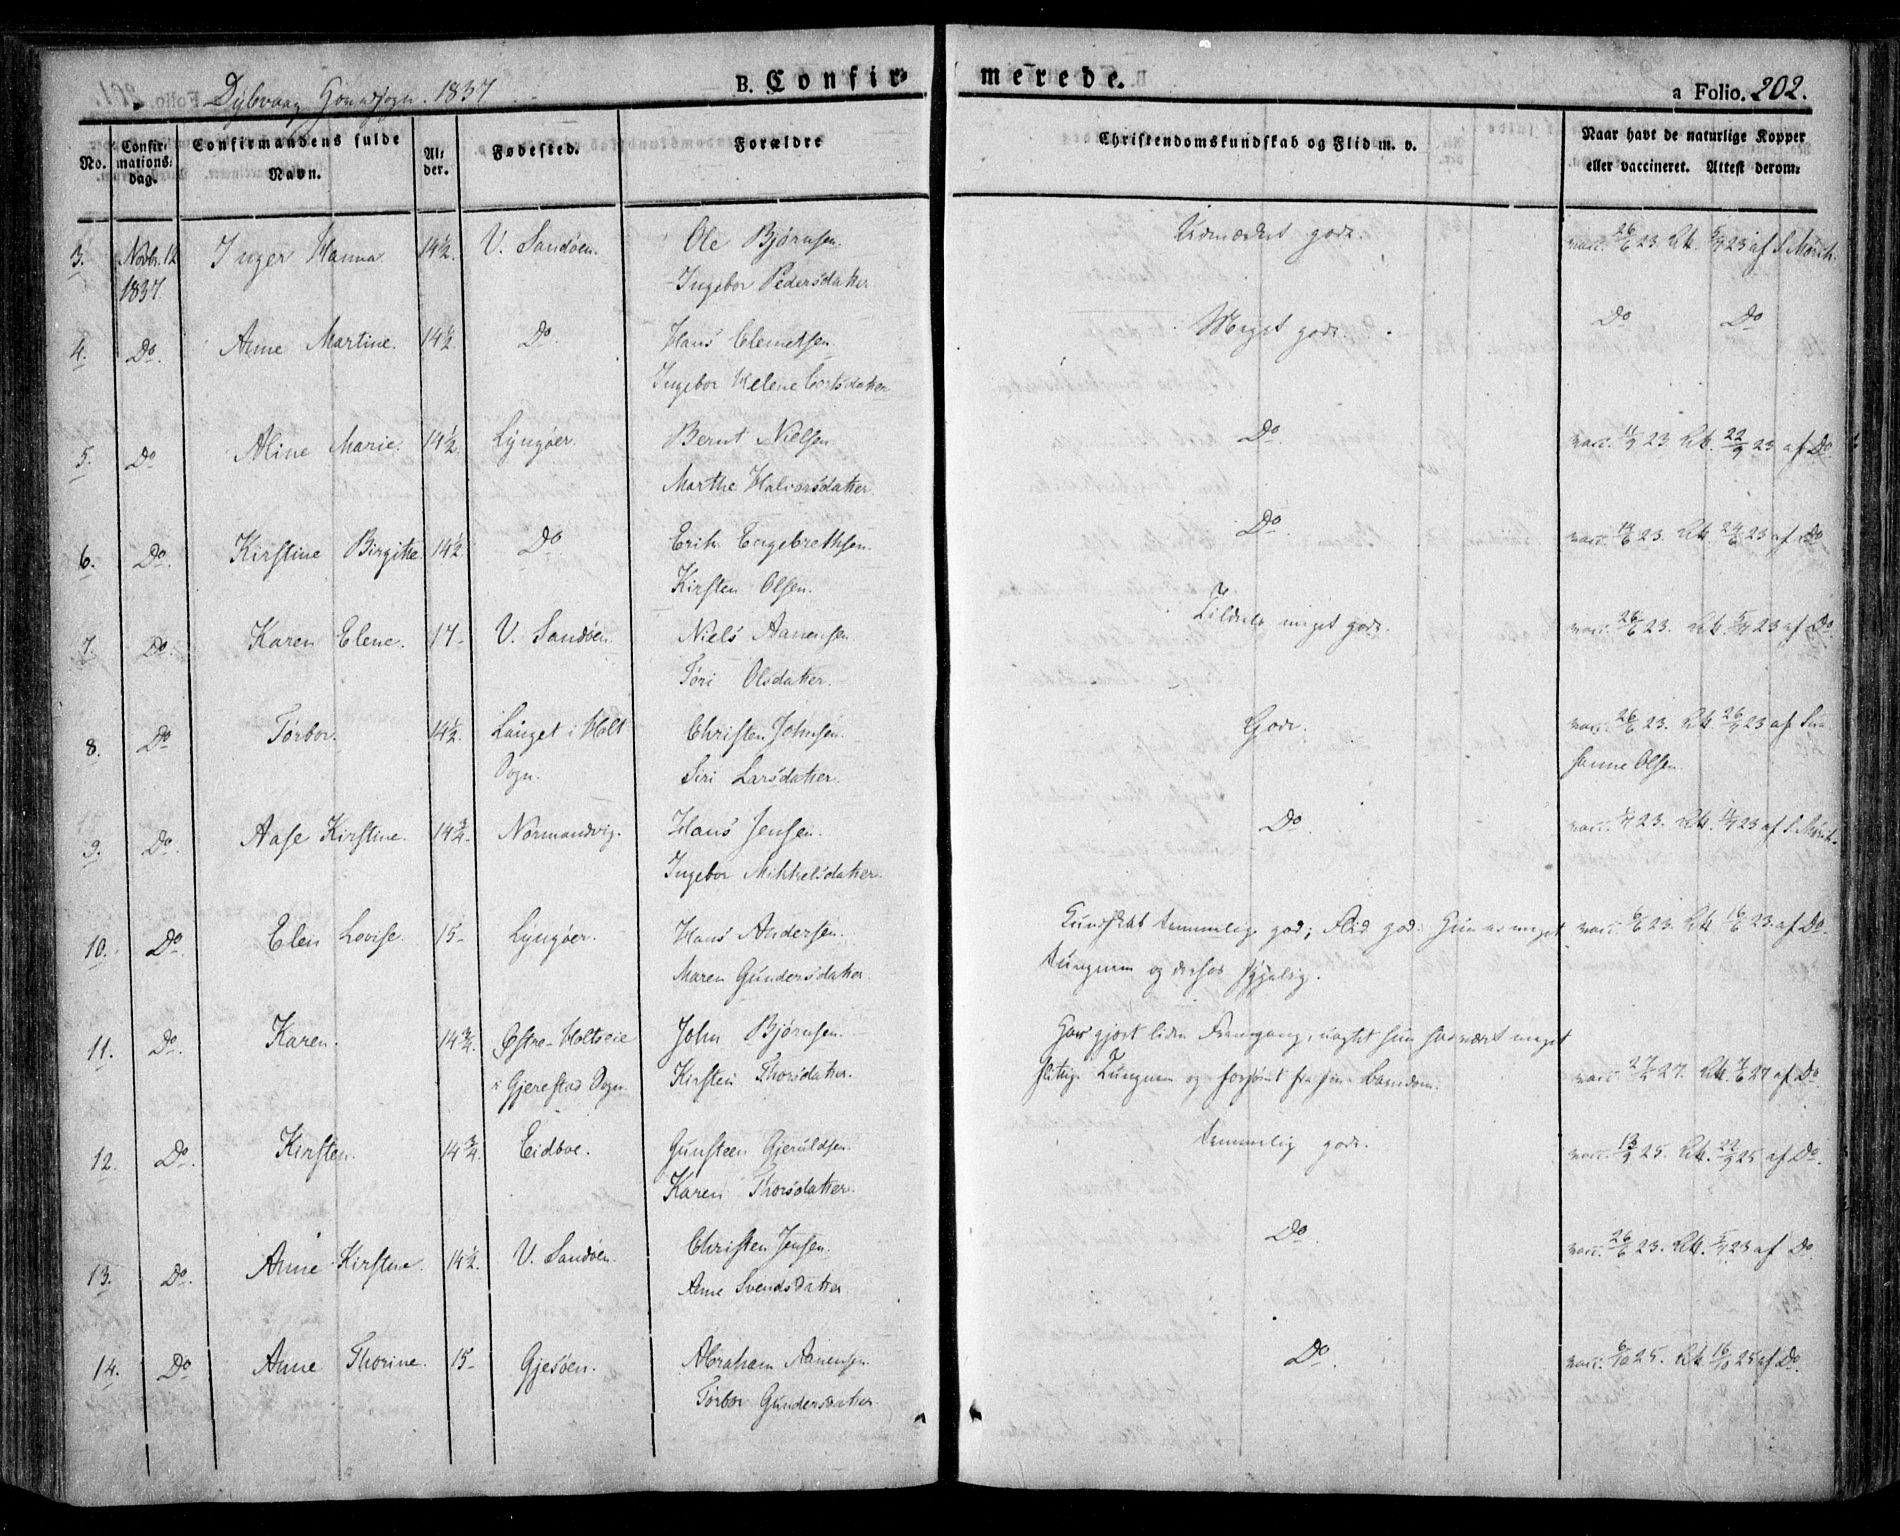 Dybvaag Hovedsogn. 1837
B. Confirmerede.
a Folio. 202.
No.
Confirmations-dag.
Confirmandens fulde Navn.
Alder.
Fødested.
Forældre
Christendomskundskab og Flid m. v.
Naar havt de naturlige Kopper eller vaccineret. Attest derom.
3. Novbr. 12 1837 Inger Hanna 14½. V. Sandøen. Ole Bjørnsen. Udmærket godt. vacc. 26/6 23. Att. 5/7 23 af S. Mørch.
Ingebor Pedersdatter
4. Do. Anne Martine. 14½. Do. Hans Clemetsen Meget godt. Do Do
Ingebor Helene Cortsdatter
5. Do Aline Marie. 14½. Lyngøer. Bernt Nielsen Do. vacc. 11/9 23 Att. 22/9 23 af Do
Marthe Halvorsdatter
6. Do. Kirstine Birgitte 14½ Do Erik Engebrethsen. Do. vacc. 14/6 23. Att. 24/6 23 af Do
Kirsten Olsen.
7. Do. Karen Elene. 17- V. Sandøen Niels Aanensen Tildeels meget godt. vacc. 26/6 23. Att. 5/7 23 af Do
Tøri Olsdatter.
8. Do Tørbor. 14½. Langet i Holt Christen Johnsen. Godt. vacc. 26/6 23. Att. 26/7 23 af Su-
Sogn. Siri Larsdatter. sanne Olsen
9. Do. Aase Kirstine. 14¾ Normandvig. Hans Jensen. Do vacc. 23. Att. 23 af S. Mørch.
Ingebor Mikkelsdatter.
10. Do Elen Lovise. 15- Lyngøer. Hans Andersen. Kundskab temmelig god; Flid god. Hun er meget vacc. 6/6 23. Att. 16/6 23. af Do.
Maren Gundersdatter tungnem og derfor
11. Do. Karen. 14¾. Østre-Holtveie John Bjørnsen. Har gjort liden Fremgang, uagtet hun har været meget
i Gjerestad Sogn. Kirsten Thorsdatter. flittig. Tungnem og forsømt fra sin Barndom. vacc. 27. Att. 27 af Do
12. Do. Kirsten. 14¾. Eidboe. Gunsteen Gjeruldsen. temmelig godt. vacc. 13/9 25. Att. 22/9 25 af Do.
Karen Thorsdatter.
13. Do. Anne Kirstine. 14½. V. Sandøen. Christen Jensen. Do. vacc. 26/6 23. Att. 5/7 23 af Do
Anne Svendsdatter
14. Do Anne Thorine. 15- Gjesøen. Abraham Aanensen. Do. vacc. 6/10 25. Att. 16/10 25 af Do.
Tørbor Gundersdatter